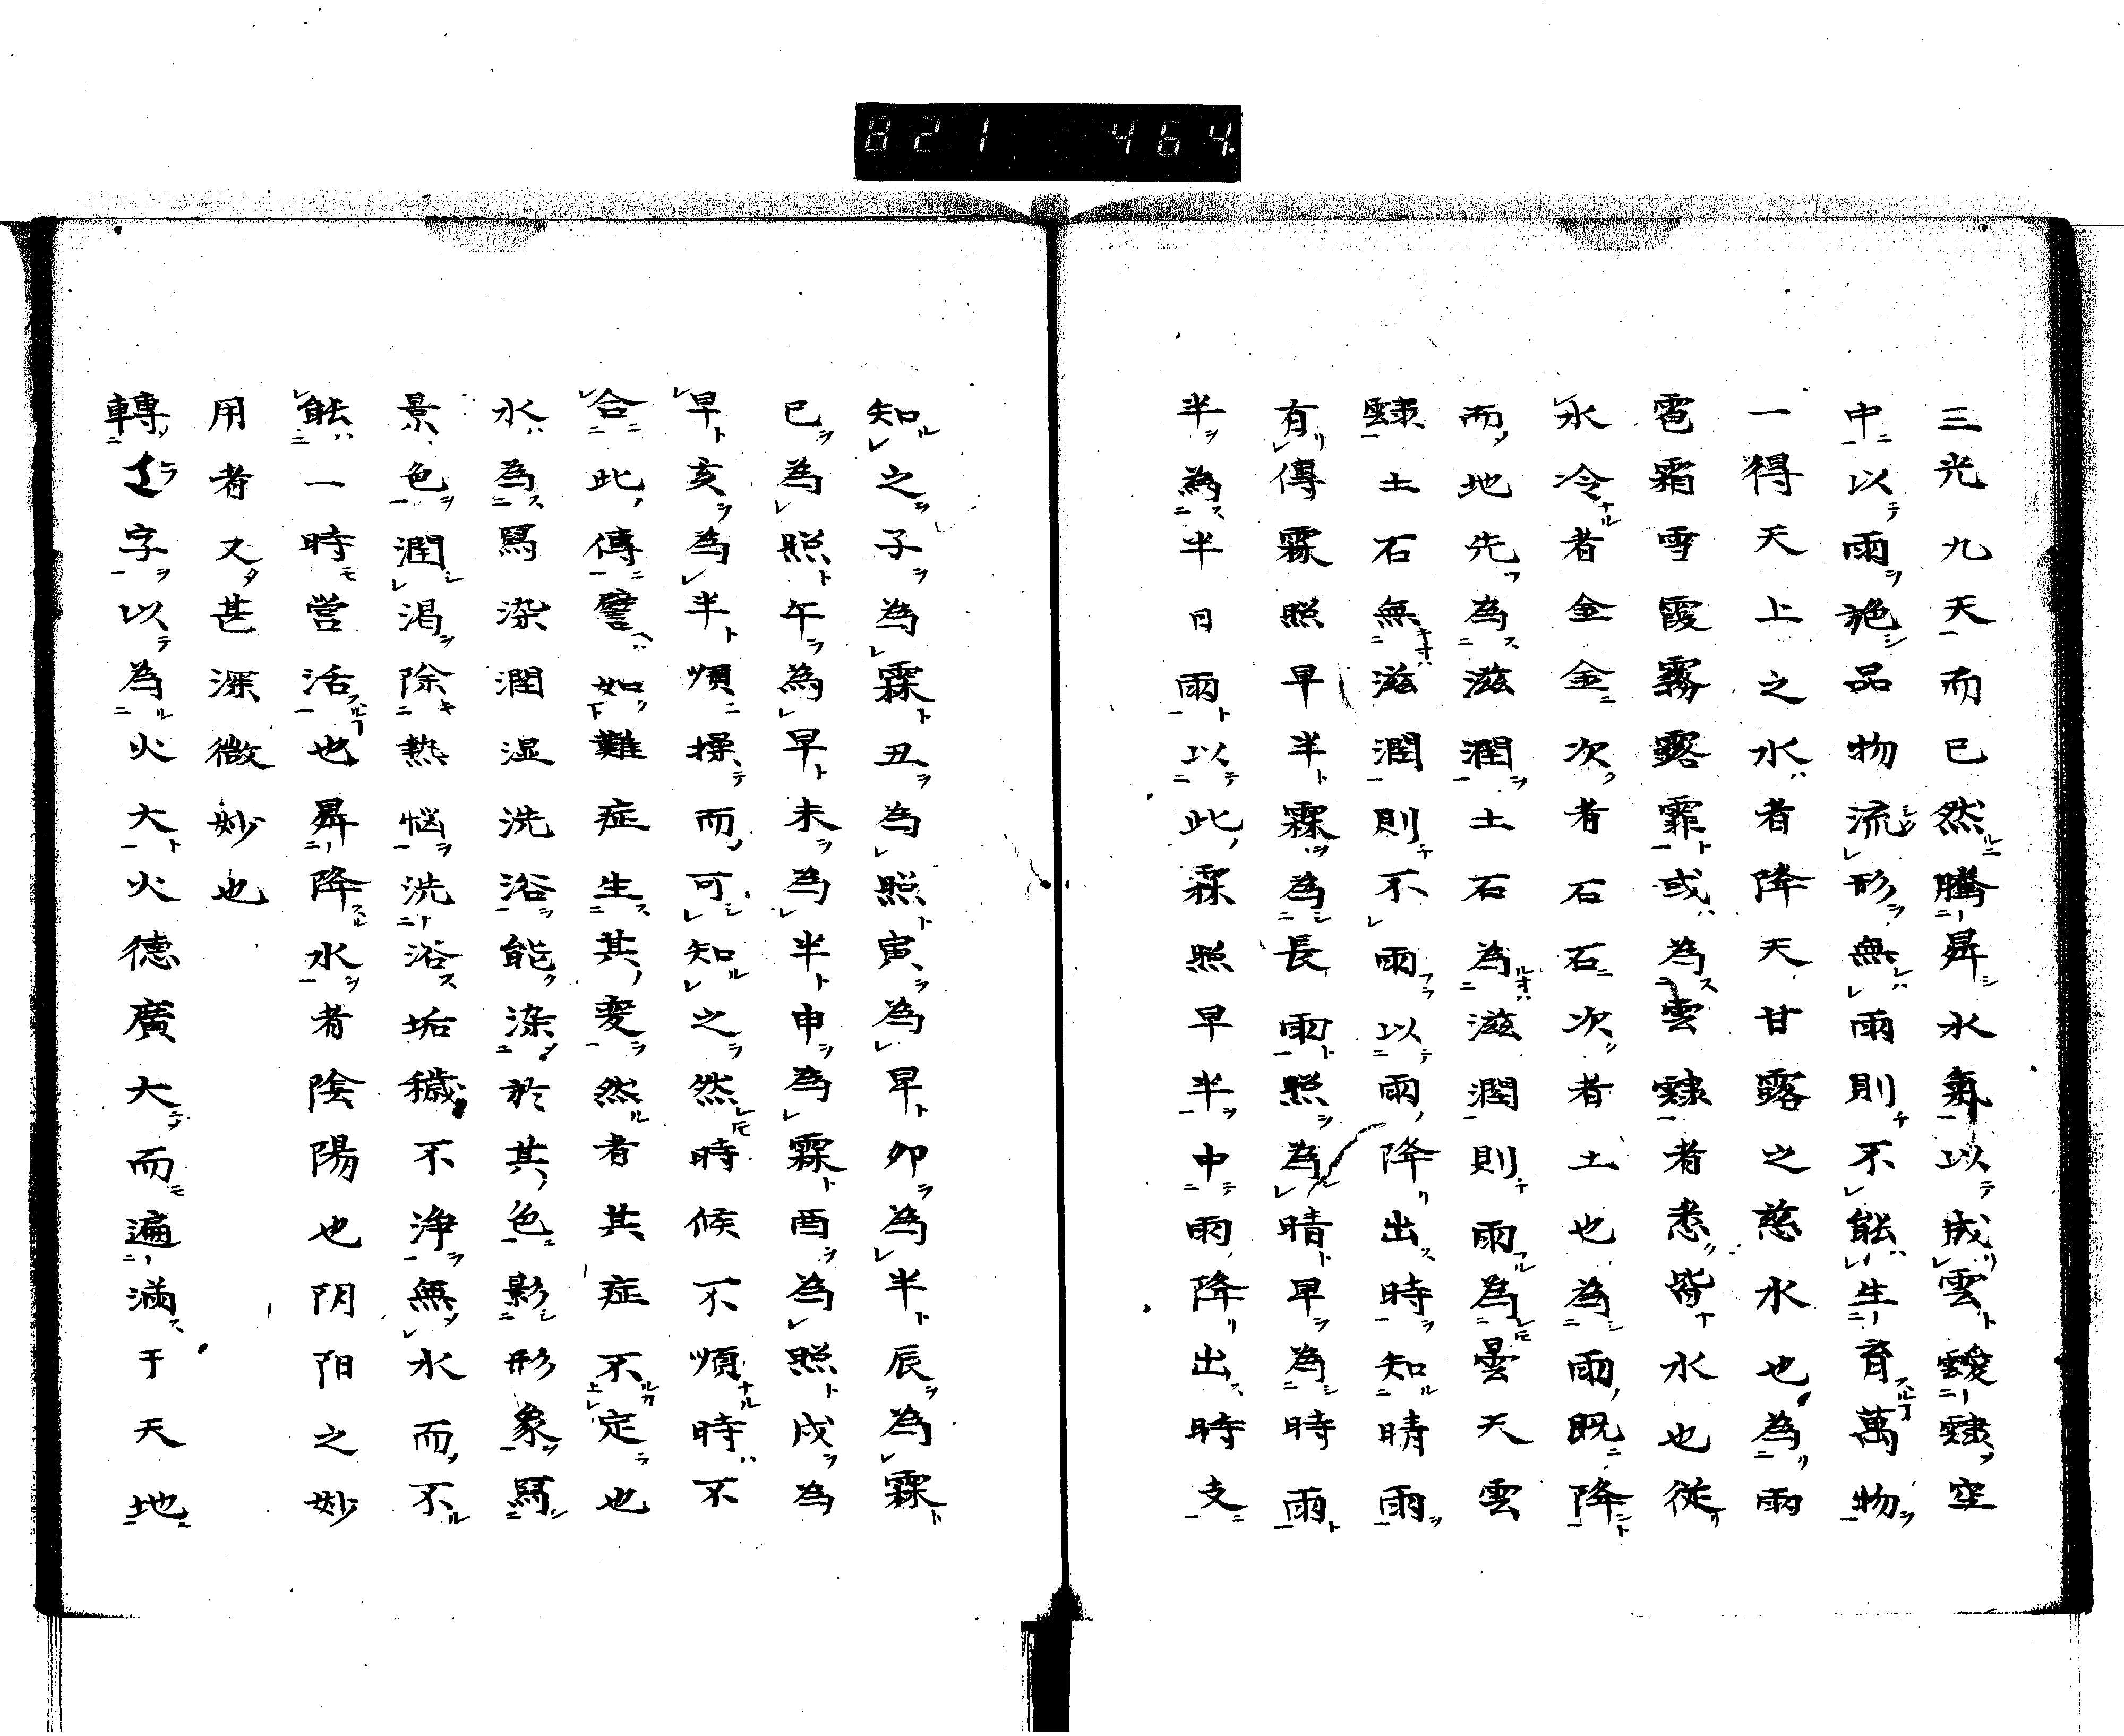 821 464
三光九天而已然騰昇水氣以成雲靉靆空
中以雨施品物流形無雨則不能生育萬物
一得天上之水者降天甘露之慈水也為雨
雹霜雪霞霧露霏或為雲靆者悉皆水也従
水冷者金金次者石石次者土也為雨既降
而地先為滋潤土石為滋潤則雨為曇天雲
靆土石無滋潤則不雨以雨降出時知晴雨
有傳霖照早半霖為長雨照為晴早為時雨
半為半日雨以此霖照早半中雨降出時支
知之子為霖丑為照寅為早卯為半辰為霖
巳為照午為早未為半申為霖酉為照戌為
早亥為半順操而可知之然時候不順時不
合此傳譬如難症生其変然者其症不定也
水為写染潤湿洗浴能染於其色影形象写
景色潤渇除熱悩洗浴垢穢不浄無水而不
能一時営活也昇降水者陰陽也阴阳之妙
用者又甚深微妙也
轉字以為火大火德廣大而遍満于天地